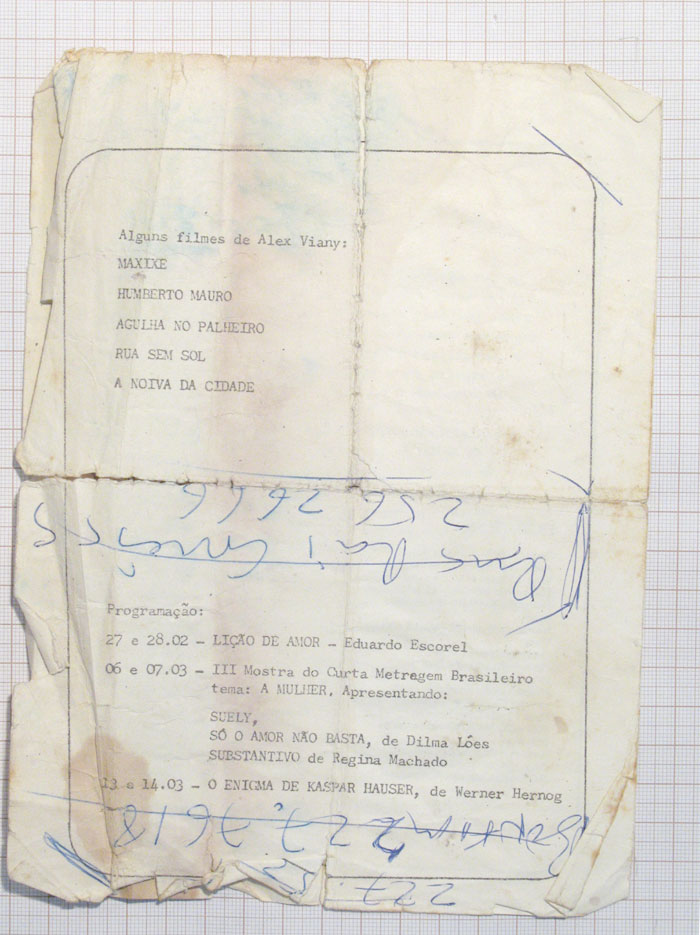 Alguns filmes de Alex Viany:
MAXIXE
HUMBERTO MAURO
AGULHA NO PALHEIRO
RUA SEM SOL
A NOIVA DA CIDADE
256 2646
Programação:
27 e 28.02 - LIÇÃO DE AMOR - Eduardo Escorel
06 e 07.03 - III Mostra do Curta Metragem Brasileiro
tema: A MULHER, Apresentando:
SUELY,
SÓ O AMOR NÃO BASTA, de Dilma Lóes
SUBSTANTIVO de Regina Machado
13 e 14.03 - O ENIGMA DE KASPAR HAUSER, de Werner Hernog
227.7618
227